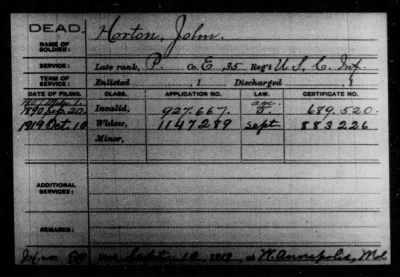 DEAD.
NAME OF SOLDIER: Horton, John.
SERVICE: Late rank, P. Co. E, 35 Reg't U.S.C. Inf.
TERM OF SERVICE: Enlisted , 1 Discharged , 1
DATE OF FILING. CLASS. APPLICATION NO. LAW. CERTIFICATE NO.
1890 Sep. 20. Invalid, 927.667. 689.520.
1919 Oct 10 Widow, 1147289 Sept 883226
Minor,
ADDITIONAL SERVICES:
REMARKS:
Sept 12, 1919, at W. Annapolis, Md